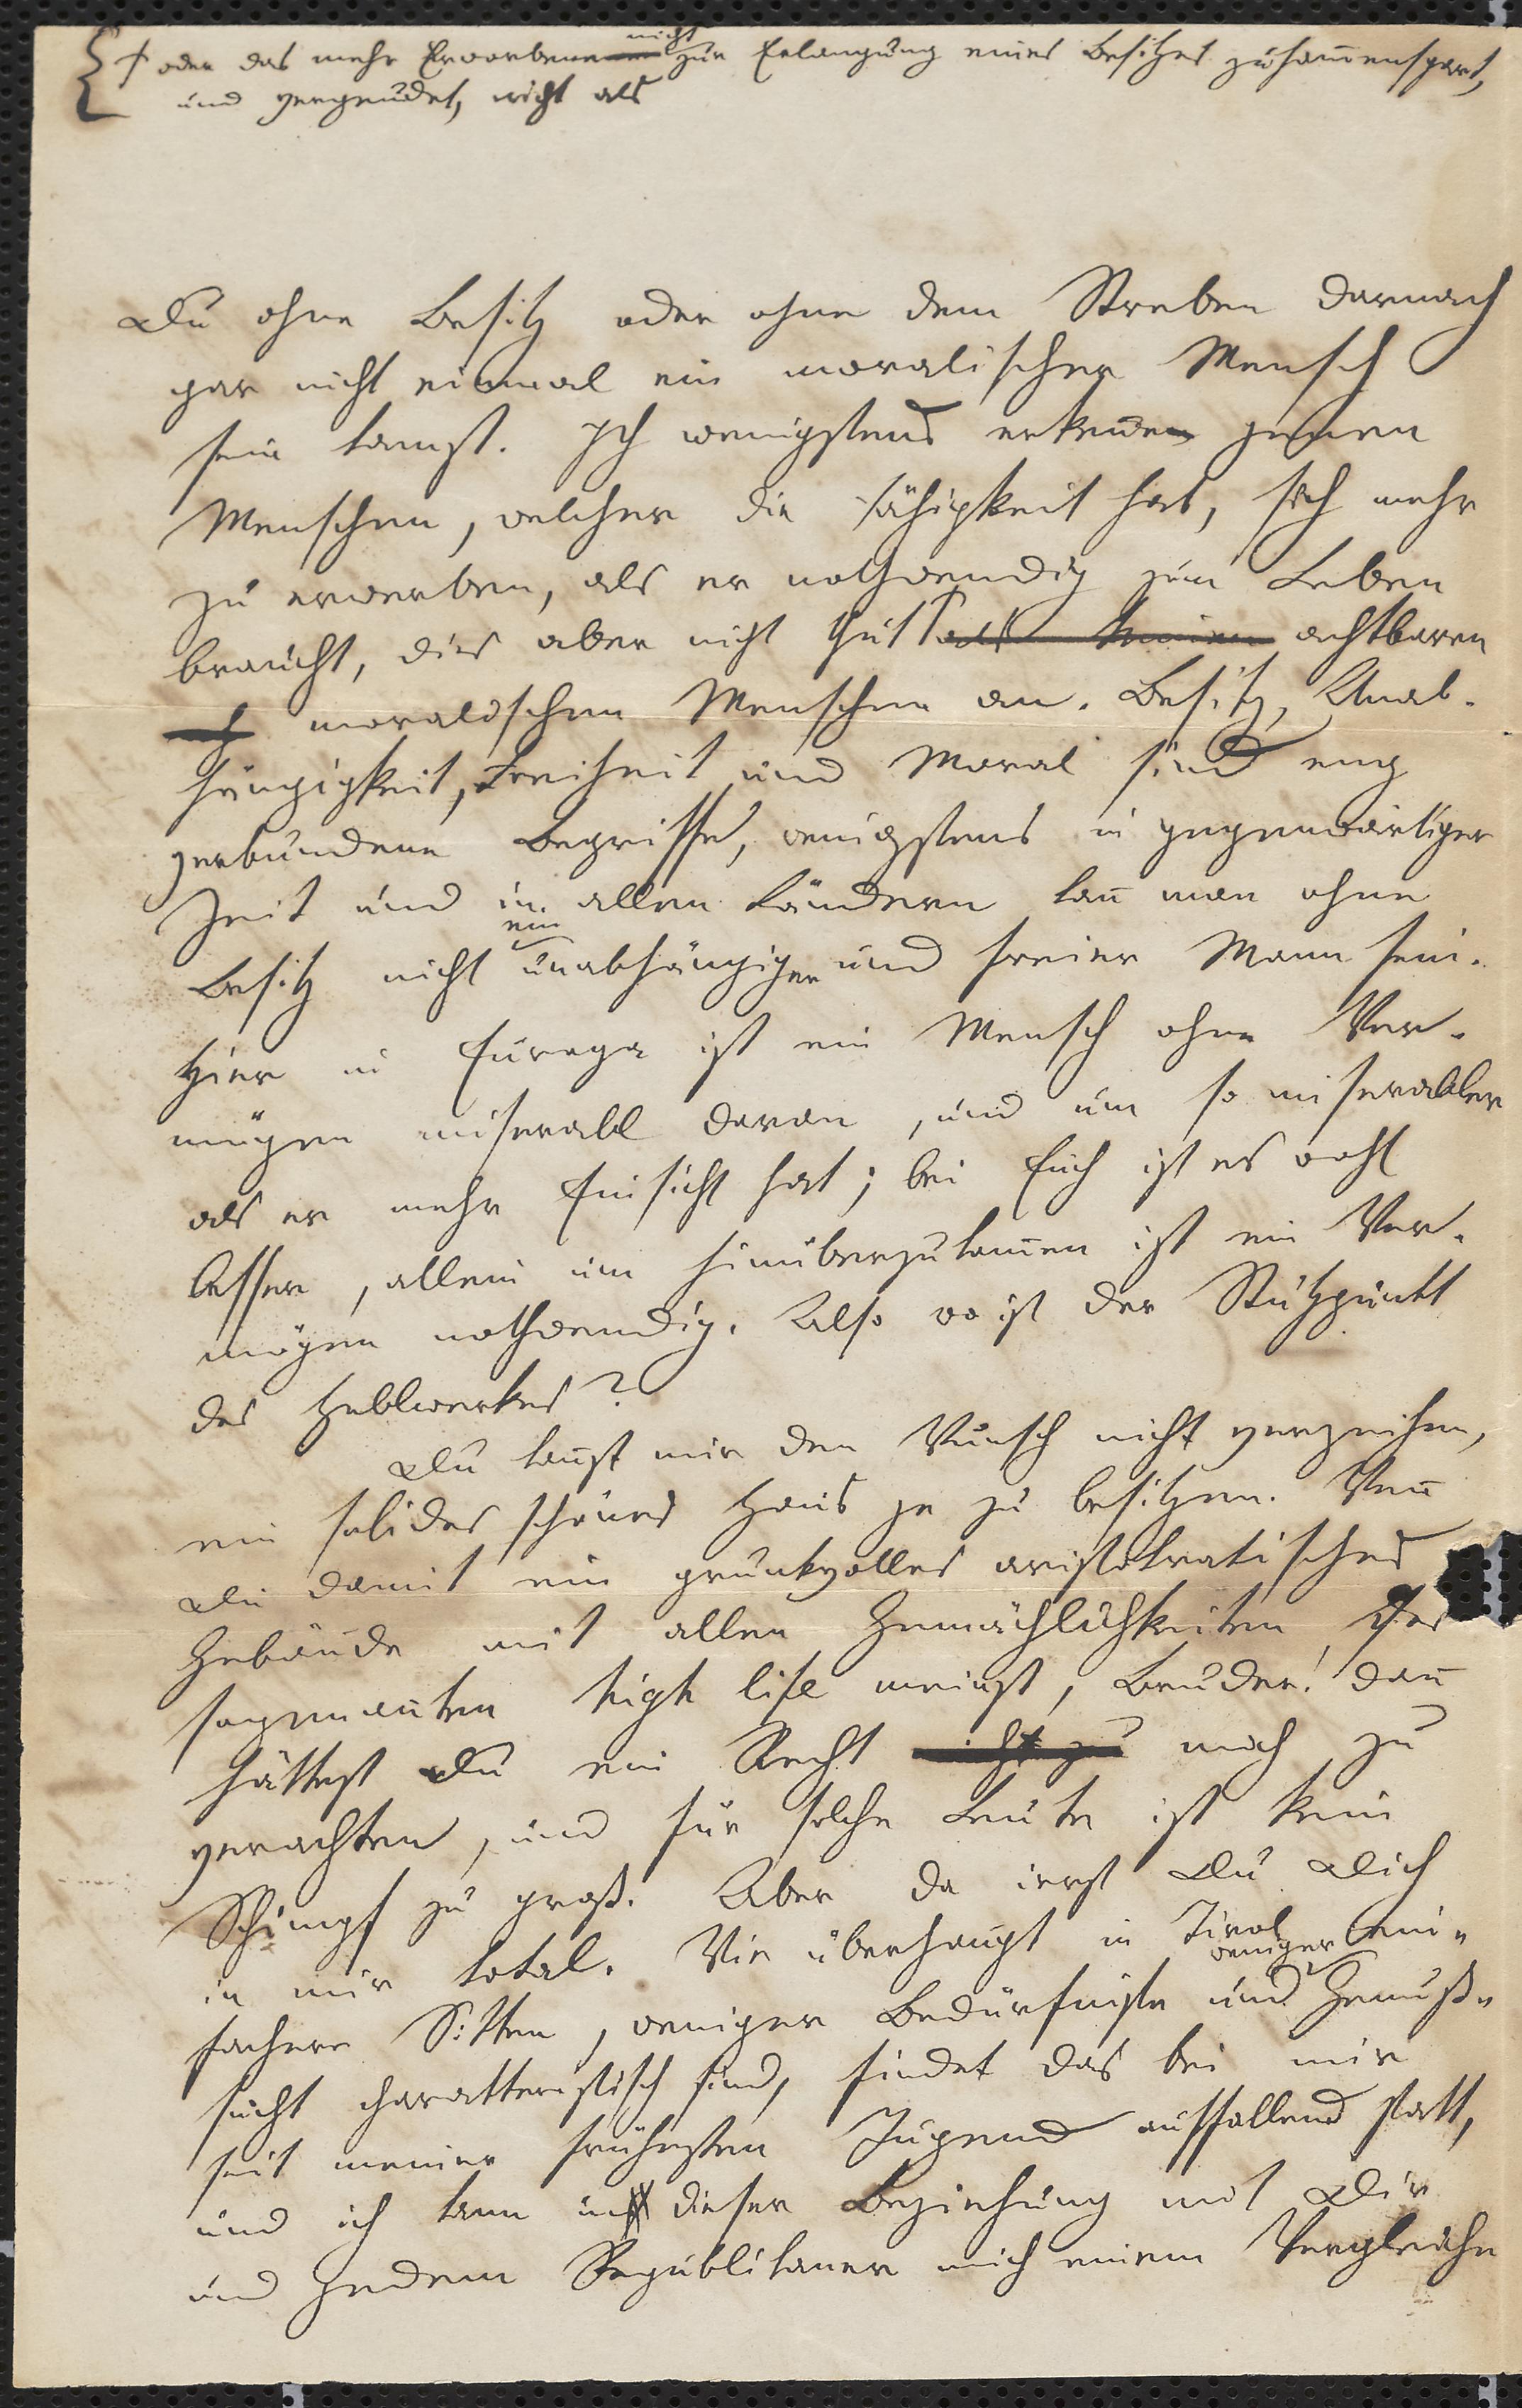 + oder das mehr Erworbene nicht zur Erlangung eines Besitzes zusam̄enspart,
und vergeudet, nicht als
Du ohne Besitz oder ohne dem Streben darnach
gar nicht einmal ein moralischer Mensch
sein kannst. Ich wenigstens erkenne jenen
Menschen, welcher die Fähigkeit hat, sich mehr
zu erwerben, als er nothwendig zum Leben
braucht, dies aber nicht thut + als keinen achtbaren
moralischen Menschen an. Besitz, Unab-
hängigkeit, Freiheit und Moral sind eng
verbundene Begriffe, wenigstens in gegenwärtiger
Zeit und in allen Ländern kan̄ man ohne
Besitz nicht ein unabhängiger und freier Mann sein.
Hier in Europa ist ein Mensch ohne Ver-
mögen miserabl daran, und um so miserabler
als er mehr Einsicht hat; bei Euch ist es wohl
besser, allein um hinüberzukom̄en ist ein Ver-
mögen nothwendig. Also wo ist der Stützpunkt
des Heblwerkes?
Du kan̄st mir den Wunsch nicht verzeihen,
ein solides schönes Haus je zu besitzen. Wen̄
Du damit ein prunkvolles aristokratisches
Gebäude mit allen Gemächlichkeiten des
sogenan̄ten high life meinst, Bruder! dan̄
hättest Du ein Recht nicht zu mich zu
verachten, und für solche Leute ist kein
Schimpf zu groß. Aber da irrst Du Dich
in mir total. Wie überhaupt in Tirol ein-
fachere Sitten, weniger Bedürfniße und weniger Genuß-
sucht charakteristisch sind, findet das bei mir
seit meiner frühesten Jugend auffallend statt,
und ich kann in dieser Beziehung mit Dir
und jedem Republikaner mich einem Vergleiche